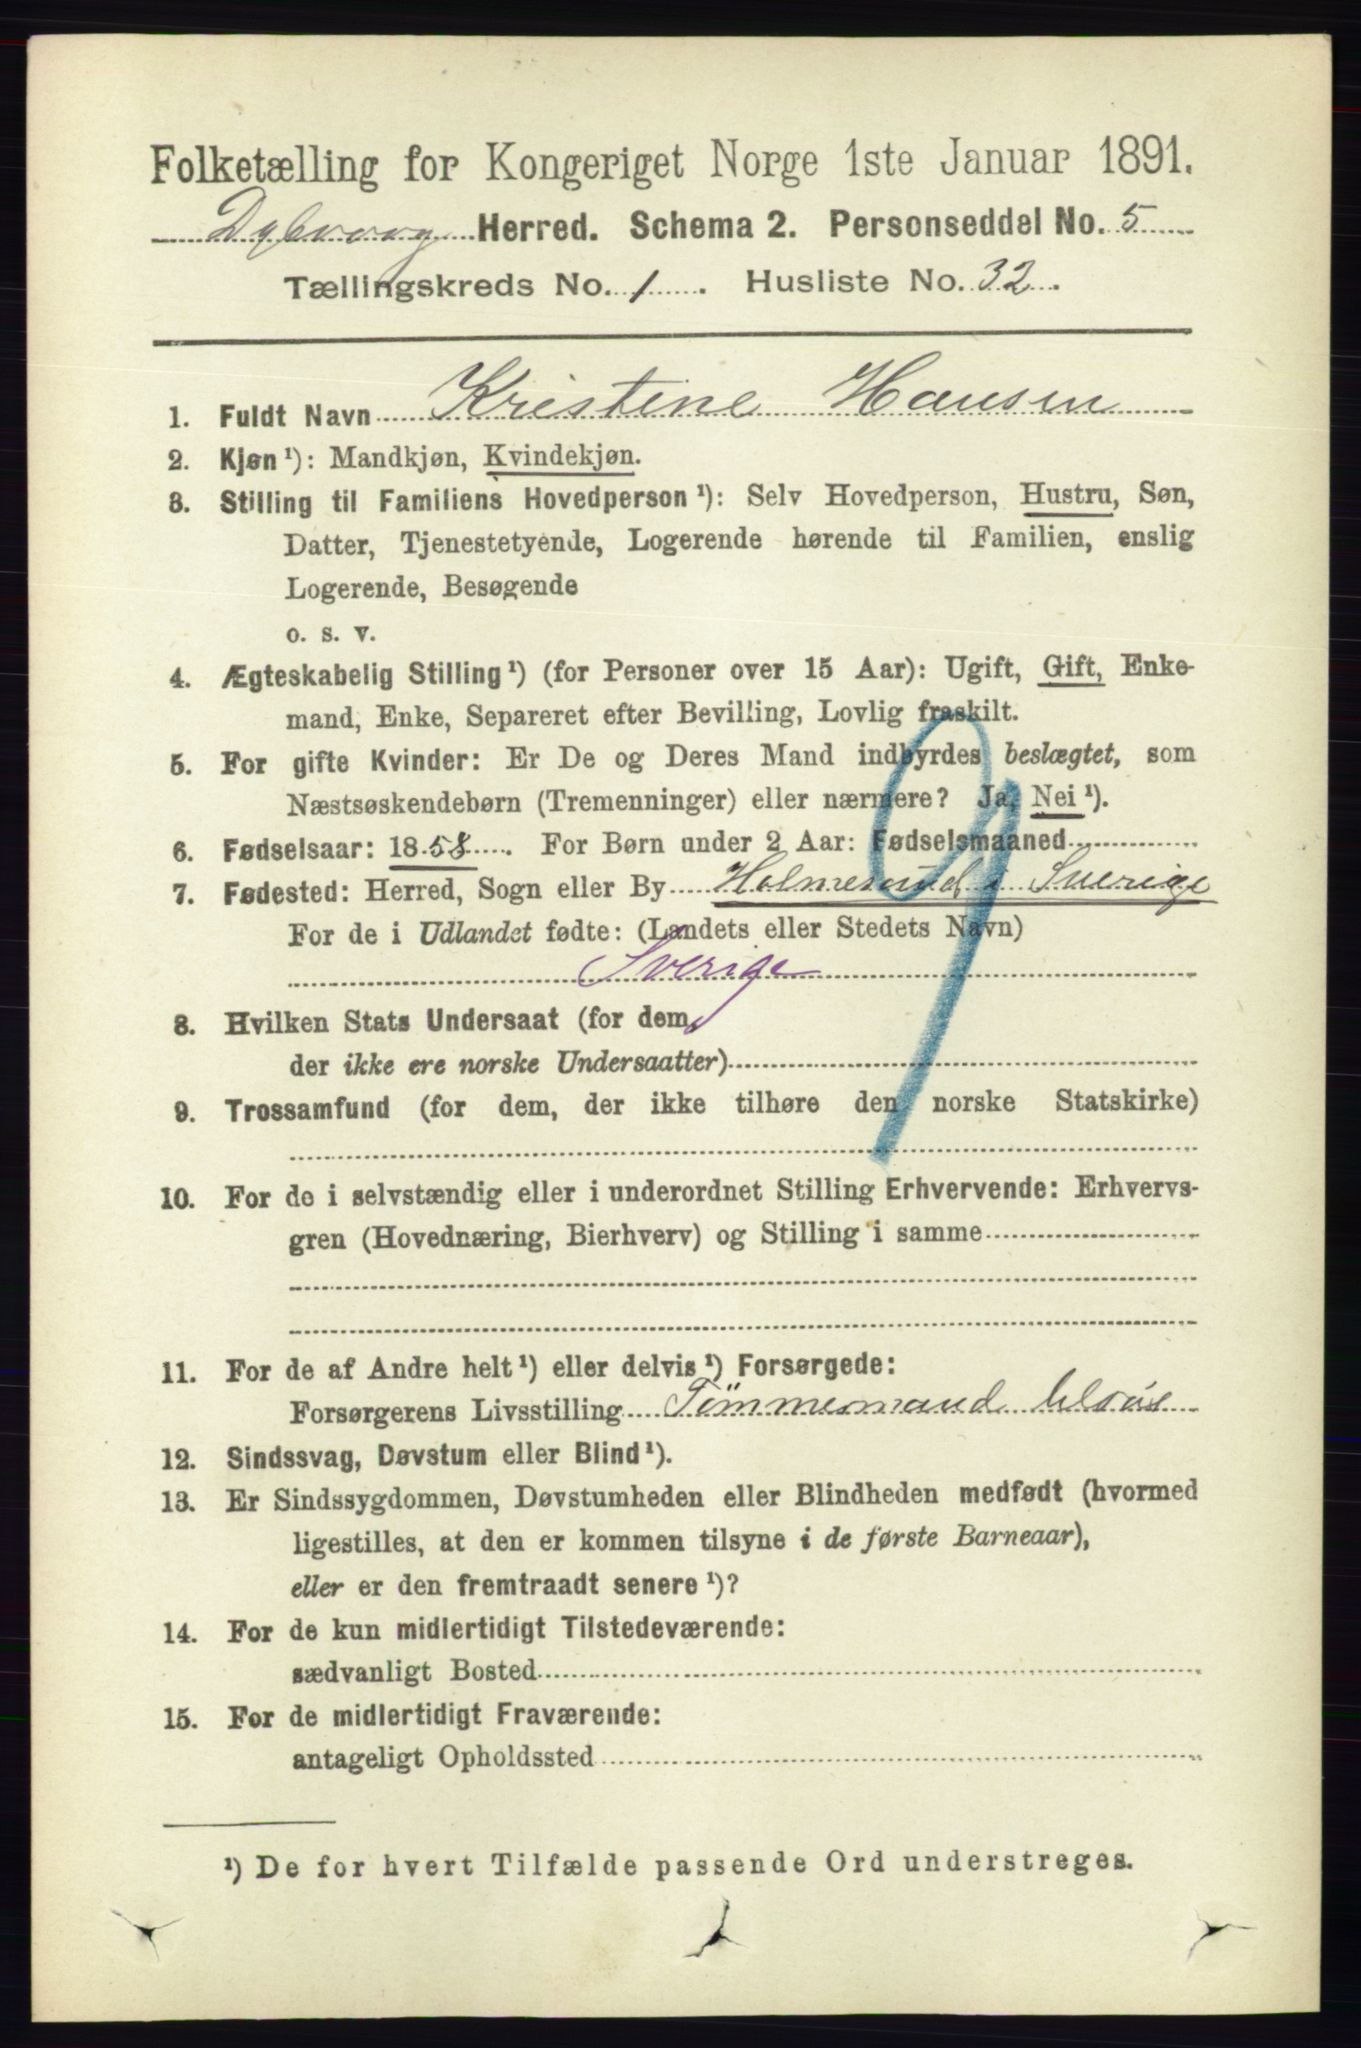 Folketælling for Kongeriget Norge 1ste Januar 1891.
Dybvaag Herred. Schema 2. Personseddel No. 5
Tællingskreds No. 1. Husliste No. 32.
1. Fuldt Navn Kristine Hansen
2. Kjøn¹): Mandkjøn, Kvindekjøn.
3. Stilling til Familiens Hovedperson¹): Selv Hovedperson, Hustru, Søn,
Datter, Tjenestetyende, Logerende hørende til Familien, enslig
Logerende, Besøgende
o. s. v.
4. Ægteskabelig Stilling¹) (for Personer over 15 Aar): Ugift, Gift, Enke-
mand, Enke, Separeret efter Bevilling, Lovlig fraskilt.
5. For gifte Kvinder: Er De og Deres Mand indbyrdes beslægtet, som
Næstsøskendebørn (Tremenninger) eller nærmere? Ja, Nei¹).
6. Fødselsaar: 1858. For Børn under 2 Aar: Fødselsmaaned
7. Fødested: Herred, Sogn eller By Holmesund i Sverige
For de i Udlandet fødte: (Landets eller Stedets Navn)
Sverige
8. Hvilken Stats Undersaat (for dem,
der ikke ere norske Undersaatter)
9. Trossamfund (for dem, der ikke tilhøre den norske Statskirke)
10. For de i selvstændig eller i underordnet Stilling Erhvervende: Erhvervs-
gren (Hovednæring, Bierhverv) og Stilling i samme
11. For de af Andre helt¹) eller delvis¹) Forsørgede:
Forsørgerens Livsstilling Tømmermand
12. Sindssvag, Døvstum eller Blind¹).
13. Er Sindssygdommen, Døvstumheden eller Blindheden medfødt (hvormed
ligestilles, at den er kommen tilsyne i de første Barneaar),
eller er den fremtraadt senere¹)?
14. For de kun midlertidigt Tilstedeværende:
sædvanligt Bosted
15. For de midlertidigt Fraværende:
antageligt Opholdssted
¹) De for hvert Tilfælde passende Ord understreges.